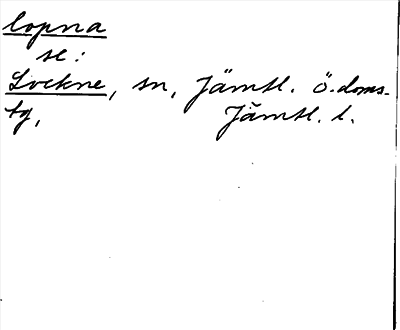 lopna
se:
Lockne, sn, Jämtl. ö. doms-
tg, Jämtl. l.